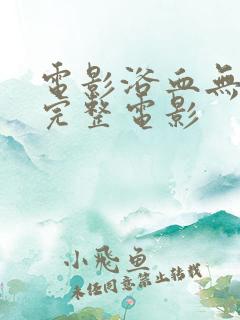 電影浴血無
完整電影
小飛魚
未經同意禁止轉載